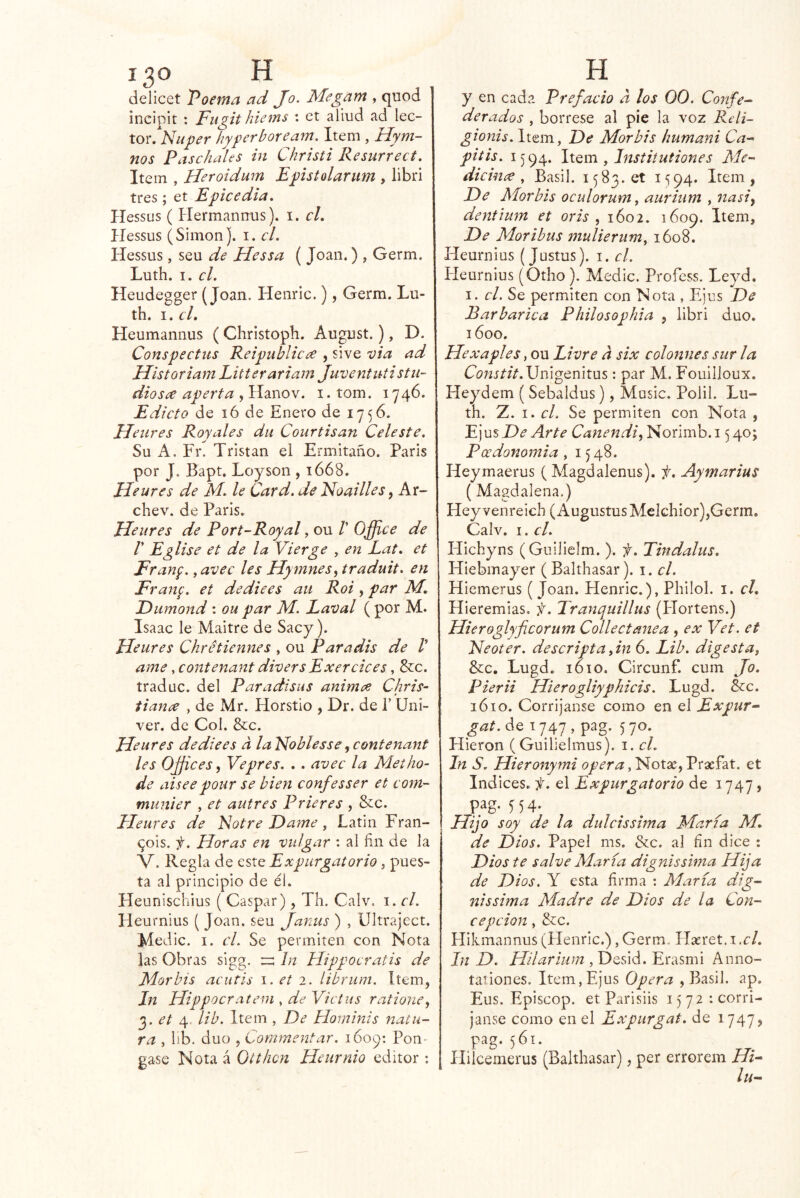 130 H
delicet Poema ad Jo. Megam , quod
incipit : Fugit hiems : et aliud ad lec-
tor. Nuper hyperboream. Item , Hym-
nos Paschales in Christi Resurrect.
Item , Heroidum Epistolarum , libri
tres ; et Epicedia.
Hessus ( Hermannus). 1. cl.
Hessus (Simon). 1. cl.
Hessus , seu de Hessa ( Joan. ) , Germ.
Luth. 1. cl.
Heudegger (Joan. Henric. ) , Germ. Lu-
th. 1. cl.
Heumannus ( Christoph. August. ), D.
Conspectus Reipublicæ , sive via ad
Historiam Litterariam Juventuti stu-
diosæ aperta , Hanov. 1. tom. 1746.
Edicto de 16 de Enero de 1756.
Heures Royales du Courtisan Celeste.
Su A. Fr. Tristan el Ermitaño. Paris
por J. Bapt. Loyson , 1668.
Heures de M. le Card. de Noailles , Ar-
chev. de Paris.
Heures de Port-Royal , ou l' Office de
l' Eglise et de la Vierge , en Lat. et
Franç. , avec les Hymnes, traduit. en
Franç. et dediees au Roi , par M.
Dumond : ou par M. Laval ( por M.
Isaac le Maitre de Sacy ).
Heures Chrêtiennes , ou Paradis de l'
ame , contenant divers Exercices , &c.
traduc. del Paradisus animæ Chris-
tianæ , de Mr. Horstio , Dr. de l' Uni-
ver. de Col. &c.
Heures dediees à la Noblesse , contenant
les Offices , Vepres. . . avec la Metho-
de aisee pour se bien confesser et com-
munier , et autres Prieres , &c.
Heures de Notre Dame , Latin Fran-
çois. ỳ. Horas en vulgar : al fin de la
V. Regla de este Expurgatorio , pues-
ta al principio de él.
Heunischius ( Caspar) , Th. Calv. 1. cl.
Heurnius ( Joan. seu Janus ) , Ultraject.
Medic. 1. cl. Se permiten con Nota
las Obras sigg. = In Hippocratis de
Morbis acutis 1. et 2. librum. Item,
In Hippocratem , de Victus ratione,
3. et 4. lib. Item , De Hominis natu-
ra , lib. duo , Commentar. 1609: Pon-
gase Nota á Otthon Heurnio editor :
H
y en cada Prefacio à los OO. Confe-
derados , borrese al pie la voz Reli-
gionis. Item, De Morbis humani Ca-
pitis. 1594. Item , Institutiones Me-
dicinæ , Basil. 1583. et 1594. Item ,
De Morbis oculorum, aurium , nasi,
dentium et oris , 1602. 1609. Item,
De Moribus mulierum, 1608.
Heurnius (Justus). 1. cl.
Heurnius (Otho ). Medic. Profess. Leyd.
1. cl. Se permiten con Nota , Ejus De
Barbarica Philosophia , libri duo.
1600.
Hexaples , ou Livre à six colonnes sur la
Constit. Unigenitus : par M. Fouilloux.
Heydem ( Sebaldus ) , Music. Polil. Lu-
th. Z. 1. cl. Se permiten con Nota ,
Ejus De Arte Canendi, Norimb. 1540;
Pædonomia , 1548.
Heymaerus ( Magdalenus). ỳ. Aymarius
( Magdalena.)
Heyvenreich (Augustus Melchior), Germ.
Calv. 1. cl.
Hichyns (Guilielm. ). ỳ. Tindalus.
Hiebmayer ( Balthasar ). 1. cl.
Hiemerus ( Joan. Henric.), Philol. 1. cl.
Hieremias. ỳ. Tranquillus (Hortens.)
Hieroglyficorum Collectanea , ex Vet. et
Neoter. descripta , in 6. Lib. digesta,
&c. Lugd. 1610. Circunf. cum Jo.
Pierii Hierogliyphicis. Lugd. &c.
1610. Corrijanse como en el Expur-
gat. de 1747 , pag. 570.
Hieron ( Guilielmus). 1. cl.
In S. Hieronymi opera , Notæ, Præfat. et
Indices. ỳ. el Expurgatorio de 1747 ,
pag. 554.
Hijo soy de la dulcissima María M.
de Dios. Papel ms. &c. al fin dice :
Dios te salve María dignissima Hija
de Dios. Y esta firma : María dig-
nissima Madre de Dios de la Con-
cepcion , &c.
Hikmannus (Henric.) , Germ. Hæret. 1. cl.
In D. Hilarium , Desid. Erasmi Anno-
tationes. Item, Ejus Opera , Basil. ap.
Eus. Episcop. et Parisiis 1572 : corri-
janse como en el Expurgat. de 1747,
pag. 561.
Hilcemerus (Balthasar) , per errorem Hi-
lu-